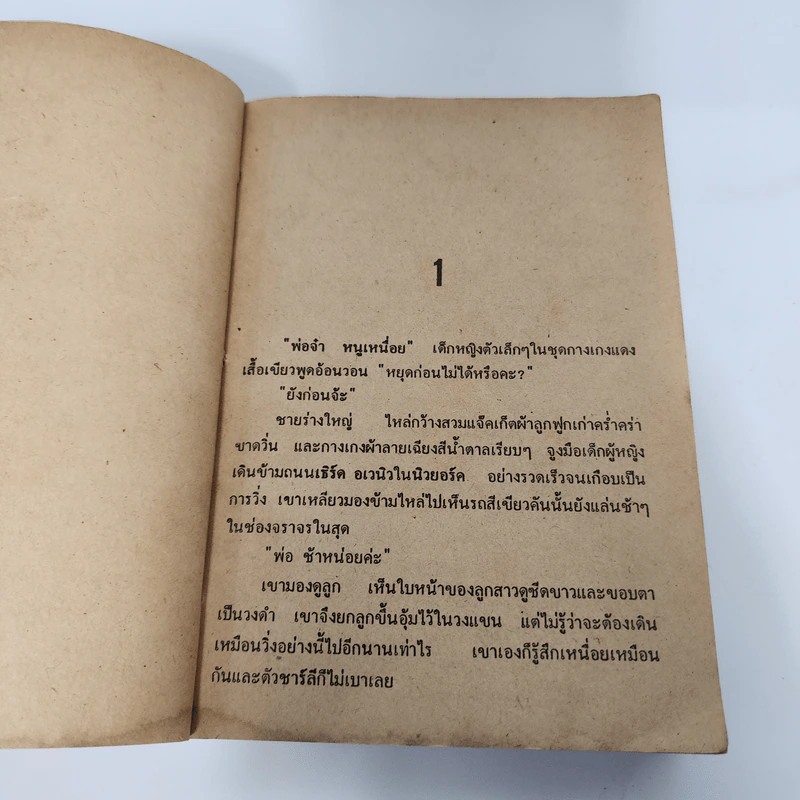 1
"พ่อจ๋า หนูเหนื่อย" เด็กหญิงตัวเล็กๆในชุดกางเกงแดง
เสื้อเขียวพูดอ้อนวอน "หยุดก่อนไม่ได้หรือคะ?"
"ยังก่อนจ้ะ"
ชายร่างใหญ่ ไหล่กว้างสวมแจ๊คเก็ตผ้าลูกฟูกเก่าคร่ำคร่า
ขาดวิ่น และกางเกงผ้าลายเฉียงสีน้ำตาลเรียบๆ จูงมือเด็กผู้หญิง
เดินข้ามถนนเธิร์ด อเวนิวในนิวยอร์ค อย่างรวดเร็วจนเกือบเป็น
การวิ่ง เขาเหลียวมองข้ามไหล่ไปเห็นรถสีเขียวคันนั้นยังแล่นช้าๆ
ในช่องจราจรในสุด
"พ่อ ช้าหน่อยค่ะ"
เขามองดูลูก เห็นใบหน้าของลูกสาวดูซีดขาวและขอบตา
เป็นวงดำ เขาจึงยกลูกขึ้นอุ้มไว้ในวงแขน แต่ไม่รู้ว่าจะต้องเดิน
เหมือนวิ่งอย่างนี้ไปอีกนานเท่าไร เขาเองก็รู้สึกเหนื่อยเหมือน
กันและตัวชาร์ลีก็ไม่เบาเลย